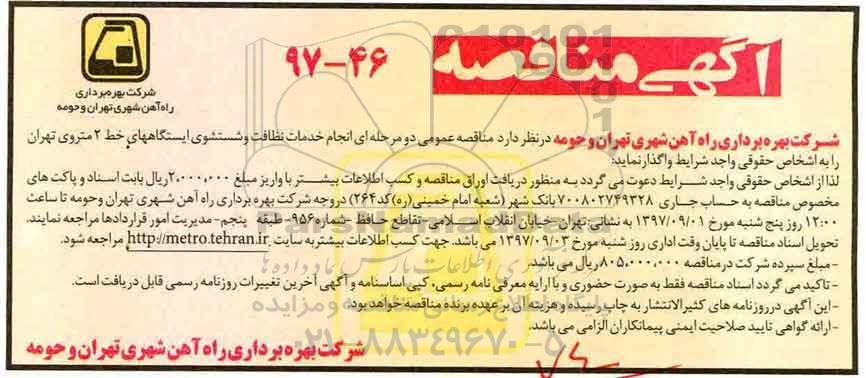 آگهی مناقصه
۹۷-۴۶
شرکت بهره برداری
راه آهن شهری تهران و حومه
شرکت بهره برداری راه آهن شهری تهران و حومه در نظر دارد مناقصه عمومی دو مرحله ای انجام خدمات نظافت و شستشوی ایستگاههای خط ۲ متروی تهران
را به اشخاص حقوقی واجد شرایط واگذار نماید:
لذا از اشخاص حقوقی واجد شرایط دعوت می گردد به منظور دریافت اوراق مناقصه و کسب اطلاعات بیشتر با واریز مبلغ ۲،۰۰۰،۰۰۰ ریال بابت اسناد و پاکت های
مخصوص مناقصه به حساب جاری ۷۰۰۸۰۲۷۴۹۳۲۸ بانک شهر (شعبه امام خمینی(ره)کد۲۶۴) در وجه شرکت بهره برداری راه آهن شهری تهران وحومه تا ساعت
۱۲:۰۰ روز پنج شنبه مورخ ۱۳۹۷/۰۹/۰۱ به نشانی:تهران-خیابان انقلاب اسلامی-تقاطع حافظ-شماره۹۵۶-طبقه پنجم-مدیریت امور قراردادها مراجعه نمایند.
تحویل اسناد مناقصه تا پایان وقت اداری روز شنبه مورخ ۱۳۹۷/۰۹/۰۳ می باشد. جهت کسب اطلاعات بیشتر به سایت http://metro.tehran.ir مراجعه شود.
- مبلغ سپرده شرکت در مناقصه ۸۰۵،۰۰۰،۰۰۰ ریال می باشد.
- تاکید می گردد اسناد مناقصه فقط به صورت حضوری و با ارایه معرفی نامه رسمی، کپی اساسنامه و آگهی آخرین تغییرات روزنامه رسمی قابل دریافت است.
- این آگهی در روزنامه های کثیرالانتشار به چاپ رسیده و هزینه آن بر عهده برنده مناقصه خواهد بود.
- ارائه گواهی تایید صلاحیت ایمنی پیمانکاران الزامی می باشد.
شرکت بهره برداری راه آهن شهری تهران و حومه
۰۲۱-۸۸۳۴۹۶۷۰-۵